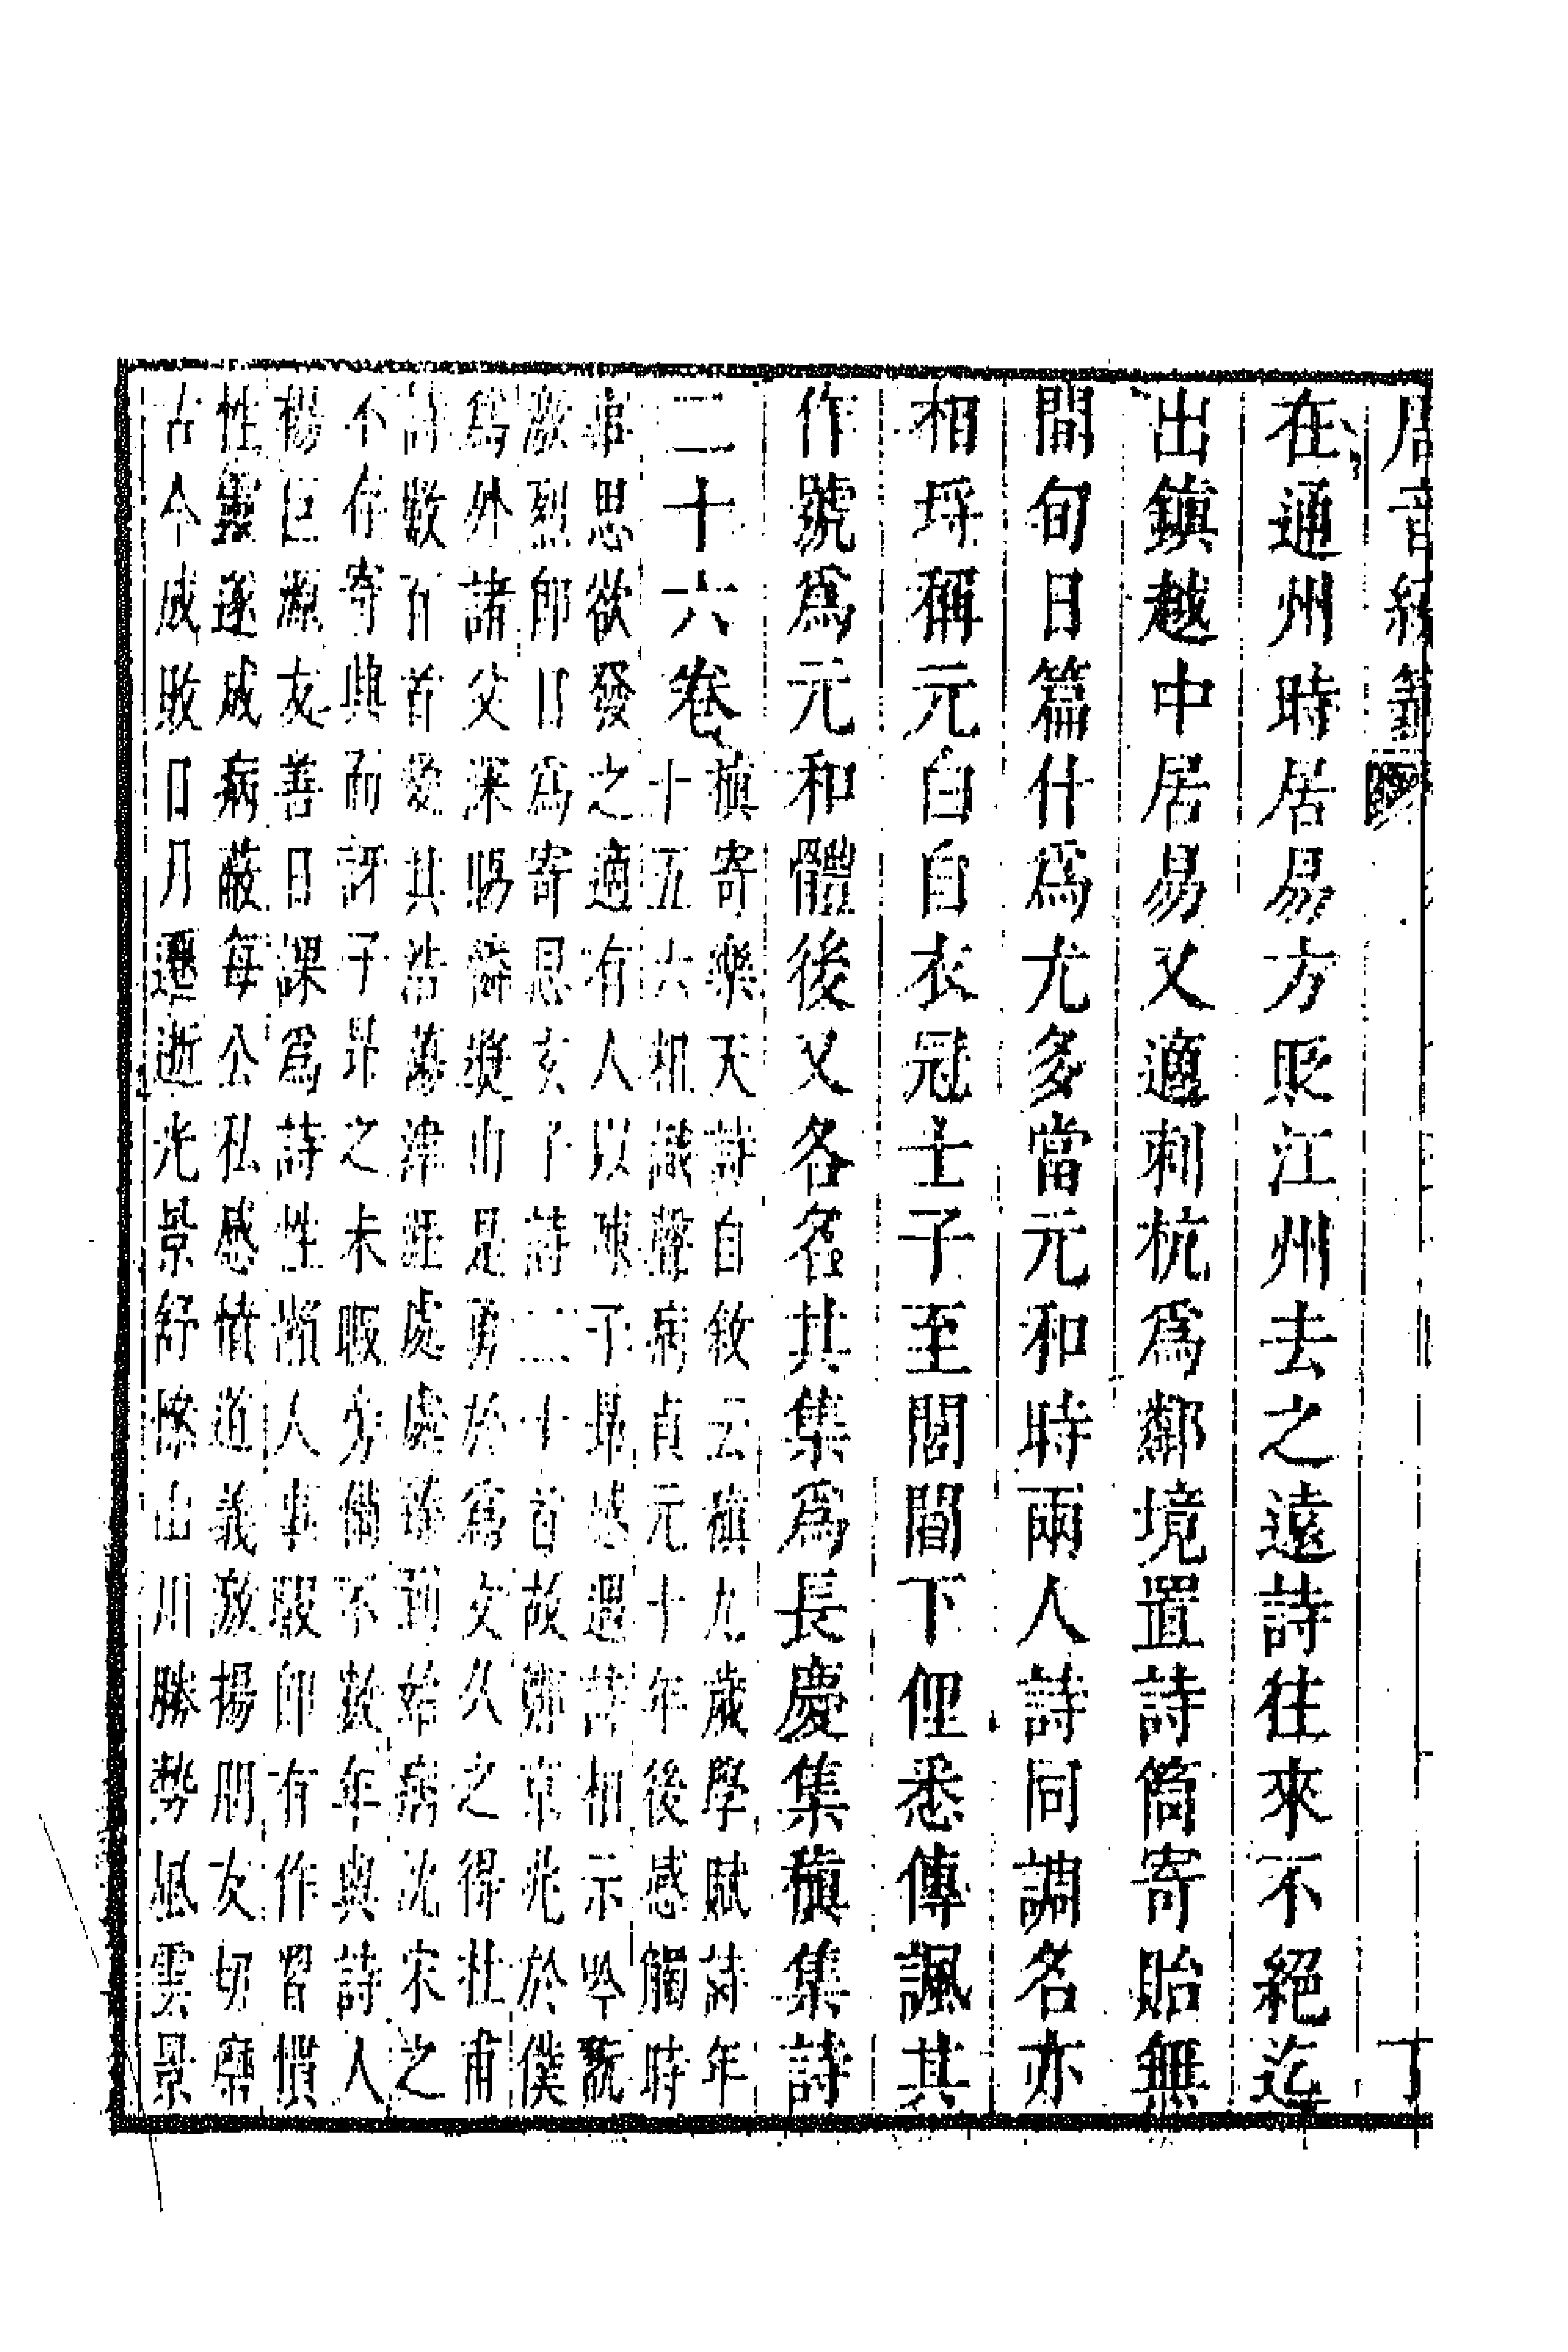 唐音統籤 丁
在通州時居易方貶江州去之遠詩往來不絕迄
出鎮越中居易又適刺杭爲鄰境置詩筒寄貽無
間旬日篇什爲尤多當元和時兩人詩同調名亦
相埒稱元白自衣冠士子至閭閻下俚悉傳諷其
作號爲元和體後又各名其集爲長慶集稹集詩
二十六卷
稹寄樂天詩自敘云稹九歲學賦詩年
十五六粗識聲病貞元十年後感觸時
事思欲發之適有人以陳子昂感遇詩相示吟翫
激烈即日爲寄思玄子詩二十首故鄭京兆於僕
爲外諸父深賜憐獎由是勇於爲文久之得杜甫
詩數百首愛其浩蕩津涯處處臻到始病沈宋之
不存寄興而訝子昂之未暇旁備不數年與詩人
楊巨源友善日課爲詩性懶人事暇即有作習慣
性靈遂成病蔽每公私感憤道義激揚朋友切磨
古今成敗日月遷逝光景舒慘山川勝勢風雲景